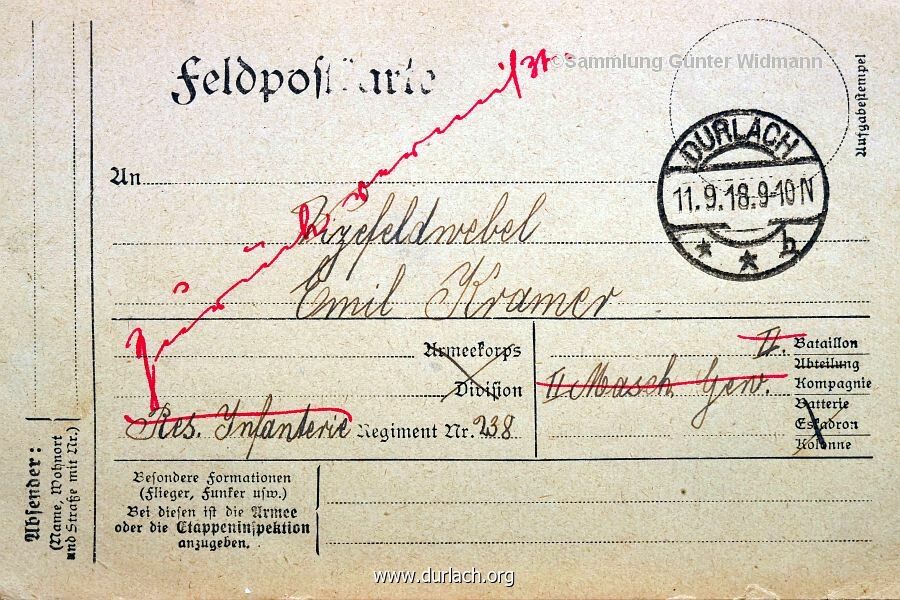 ©Sammlung Günter Widmann
Feldpostkarte
Aufgabestempel
DURLACH
11.9.18.9-10N
* * b
An
Vizefeldwebel
Emil Kramer
Zurück vermißt
Armeekorps
Division
Res. Infanterie Regiment Nr. 238
II. Bataillon
Abteilung
II Masch. Gew. Kompagnie
Batterie
Eskadron
Kolonne
Absender:
(Name, Wohnort
und Straße mit Nr.)
Besondere Formationen
(Flieger, Funker usw.)
Bei diesen ist die Armee
oder die Etappeninspektion
anzugeben.
www.durlach.org